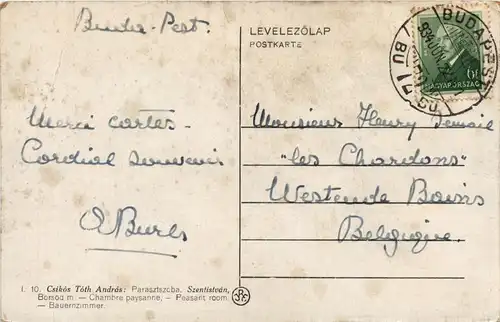 Buda-Pest.
LEVELEZŐLAP
POSTKARTE
BUDAPEST
MAGYARORSZÁG
Merci cartes
Cordial souvenir
Monsieur Henry
"les Chardons"
Westende Bains
Belgique.
I. 10. Csikós Tóth András: Parasztszoba. Szentistván,
Borsod m. — Chambre paysanne. — Peasant room.
— Bauernzimmer.